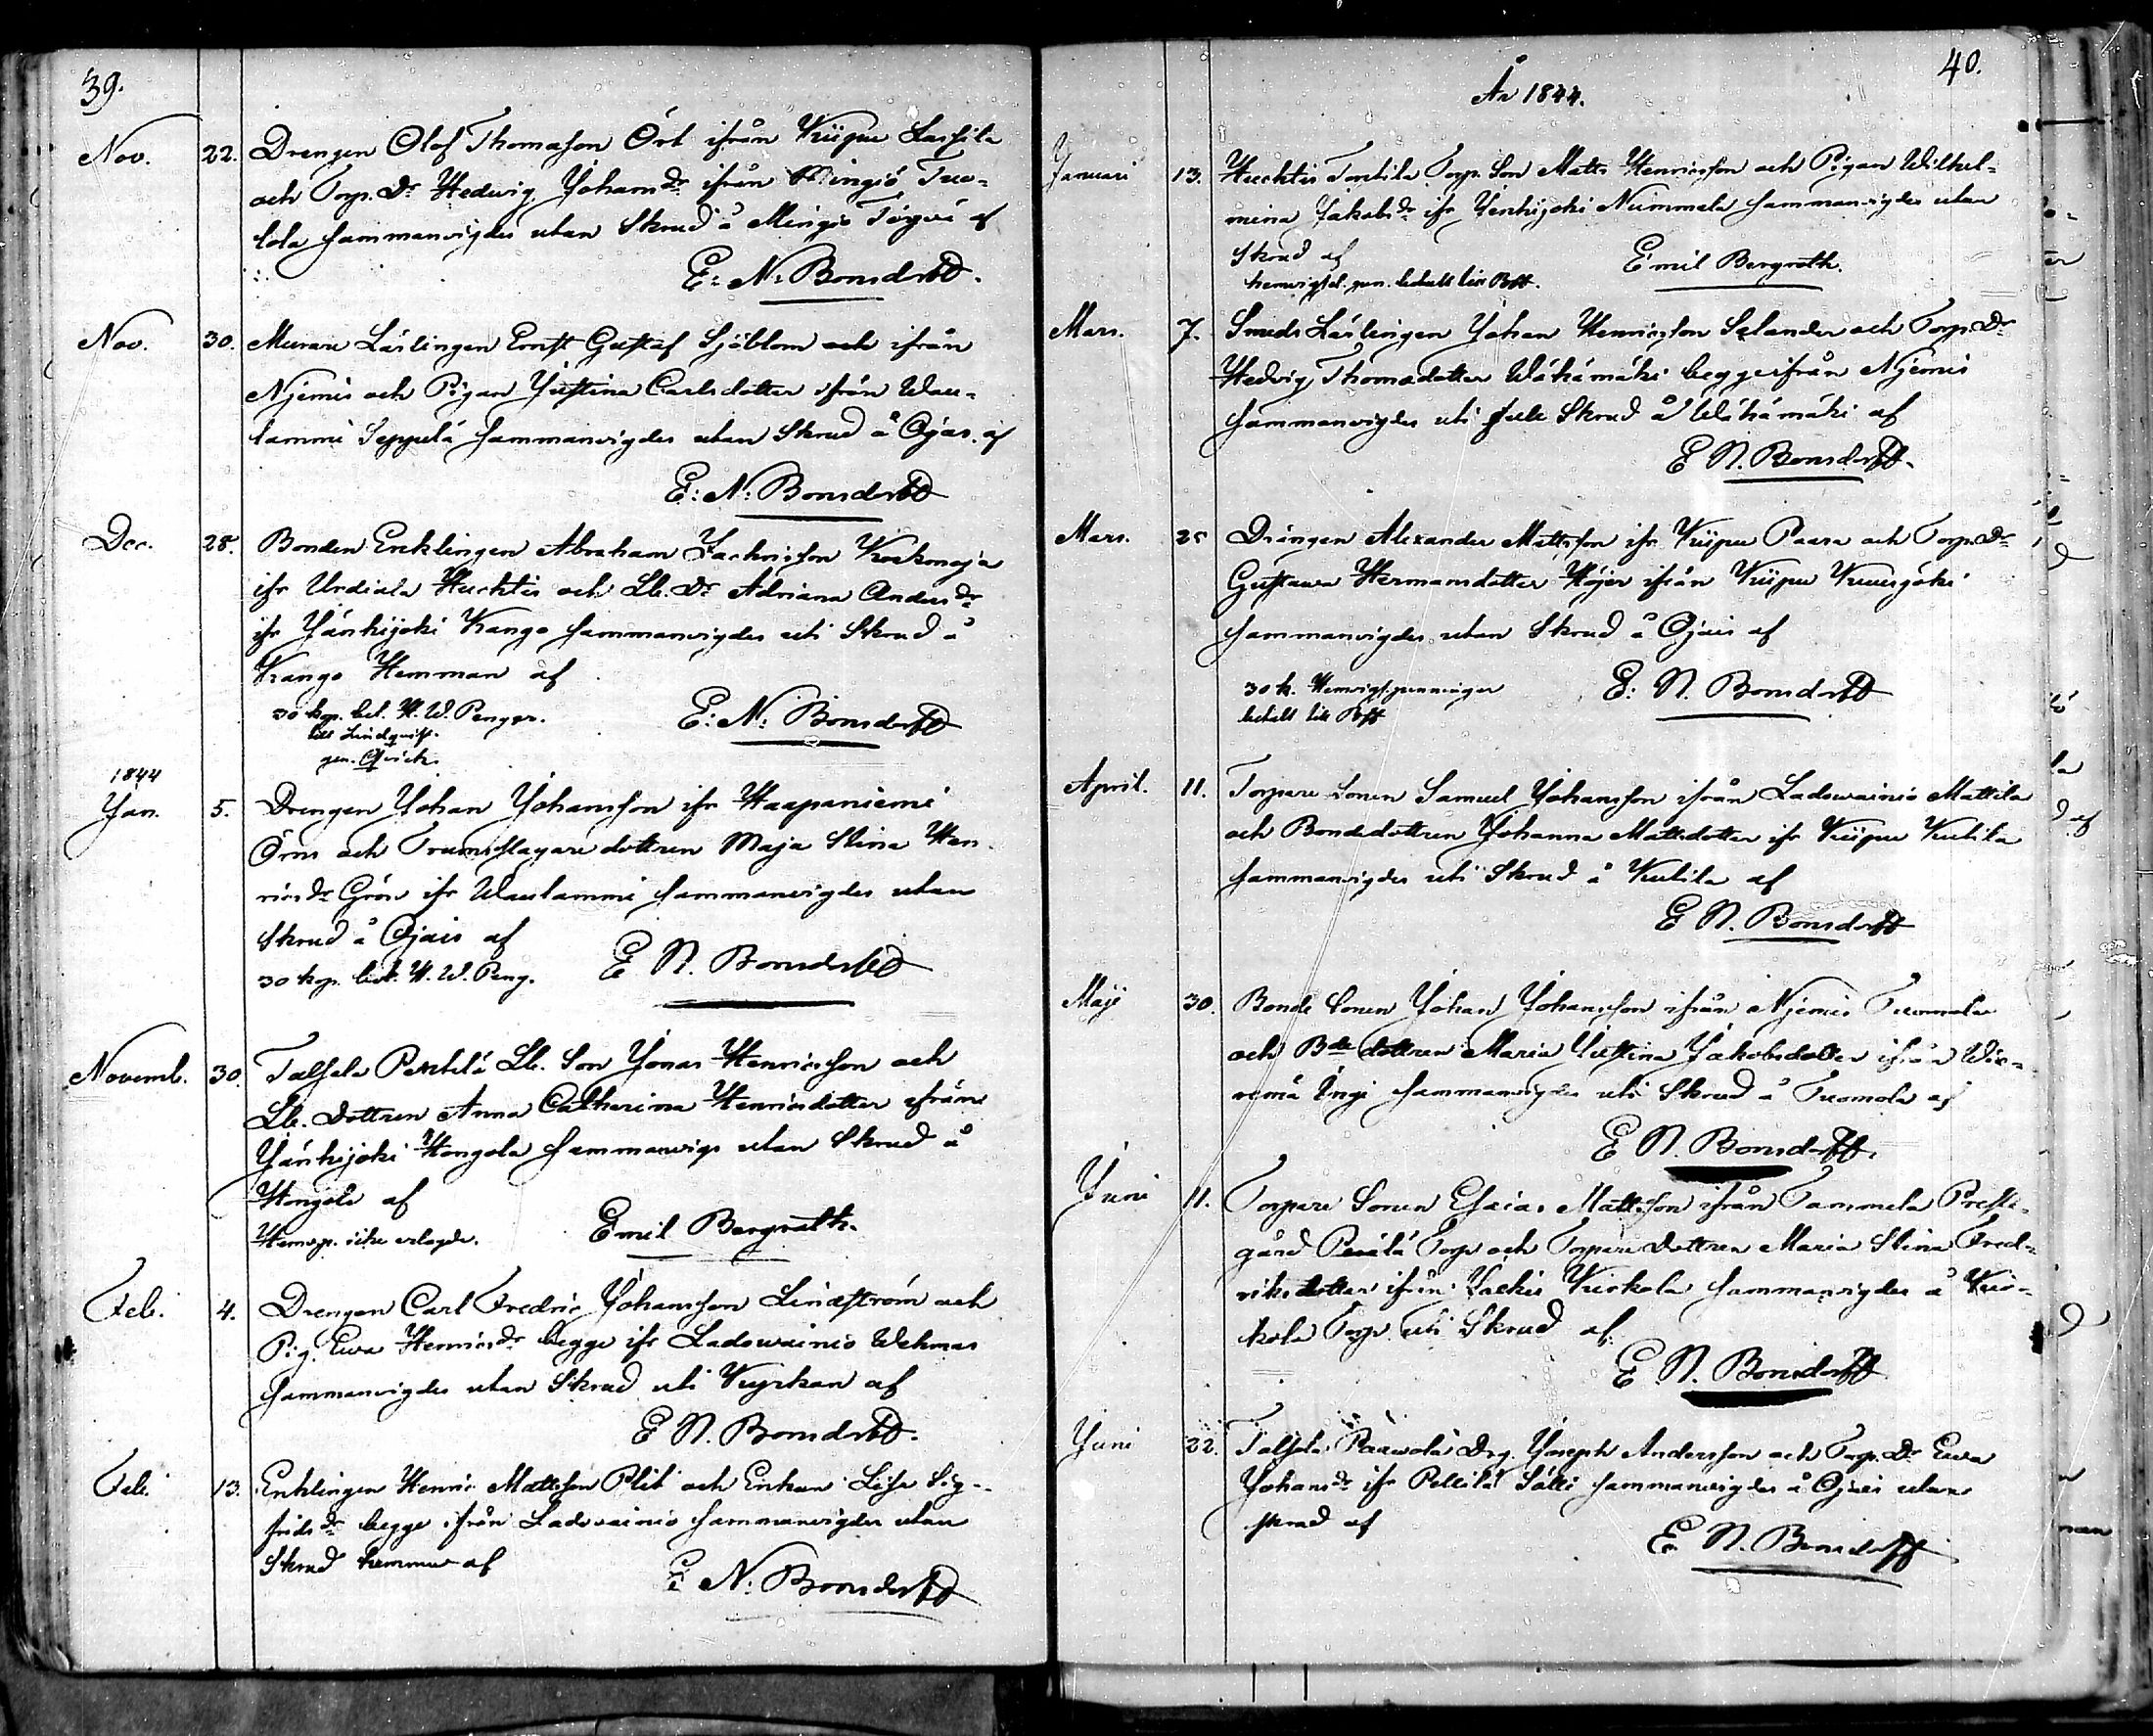 39.
Nov. 22. Drengen Olof Thomasson Ört ifrån Kiipu Lassila
och Torp. Dr Hedvig Johansdr ifrån Mingiö Tuo-
lola sammanvigdes utan Skrud å Mingiö af
E: N: Bonsdorff.
Nov. 30. Murare Lärlingen Ernst Gustaf Sjöblom och ifrån
Njemis och Pigan Justina Carlsdotter ifrån Wau-
lammi Seppälä sammanvigdes utan Skrud å Ojais af
E: N: Bonsdorff
Dec. 28. Bonden Enklingen Abraham Zachrisson
ifr Urdiala Huhtis och Lb. Dr Adriana Andersdr
ifr Jänhijoki Kango sammanvigdes uti Skrud å
Kango Hemman af
30 kop. bet. H. W. Pengar.
till Lindqvist.
gen. Qvick.
E: N: Bonsdorff
1844
Jan. 5. Drengen Johan Johansson ifr Haapaniemi
Örn och Trumslagare dottren Maja Stina Hen-
ricsdr Grön ifr Waulammi sammanvigdes utan
Skrud å Ojais af
30 kop. bet. H. W. Peng.
E N. Bonsdorff
Novemb. 30. Talsola Penttilä Lb. Son Jonas Henricsson och
Lb. Dottren Anna Catharina Henricsdotter ifrån
Jänhijoki Hongola sammanvigs utan Skrud å
Hongola af
Hemvp. icke erlagde.
Emil Bergroth.
Feb. 4. Drengen Carl Fredric Johansson Lindström och
Pig. Ewa Henricsdr begge ifr Ladowainio Wehmas
sammanvigdes utan Skrud uti Kyrkan af
E N. Bonsdorff.
Feb. 13. Enklingen Henric Mattsson Plit och Enkan Lisa Sig-
fridsdr begge ifrån Ladovainio sammanvigdes utan
Skrud hemma af
E: N: Bonsdorff
40.
År 1844.
Januari 13. Huhtis Tontila Torp. Son Matts Henricsson och Pigan Wilhel-
mina Jakobsdr ifr Jenhijoki Nummela sammanvigdes utan
Skrud af
hemvigsel. pen. betalt till Bff.
Emil Bergroth.
Mars. 7. Smeds Lärlingen Johan Henricsson Selander och Torp. Dr
Hedvig Thomasdotter Wähämäki begge ifrån Njemis
sammanvigdes uti full Skrud å Wähämäki af
E N. Bonsdorff.
Mars. 25 Drängen Alexander Mattsson ifr Kiipu Paara och Torp. Dr
Gustava Hermansdotter Höijer ifrån Kiipu Kuusijoki
sammanvigdes utan Skrud å Ojais af
30 k. Hemvigs. penningar
betalt till Bff
E: N. Bonsdorff
April. 11. Torpare Sonen Samuel Johansson ifrån Ladowainio Mattila
och Bondedottren Johanna Mattsdotter ifr Kiipu Kutila
sammanvigdes uti Skrud å Kutila af
E N. Bonsdorff
Maji 30. Bonde Sonen Johan Johansson ifrån Njemis Tuomola
och Bde dottren Maria Justina Jakobsdotter ifrån Wie-
remä Ingi sammanvigdes uti Skrud å Tuomola af
E N. Bonsdorff.
Juni 11. Torpare Sonen Esaias Mattsson ifrån Tammela Preste-
gård Perälä Torp och Torpare Dottren Maria Stina Fred-
riksdotter ifrån Jackis Kiskola sammanvigdes å Kis-
kola Torp uti Skrud af
E N. Bonsdorff
Juni 22. Talsola Paawola Drg. Joseph Andersson och Torp. Dr Ewa
Johansdr ifr Pellilä Sälli sammanvigdes å Ojais utan
skrud af
E. N. Bonsdorff